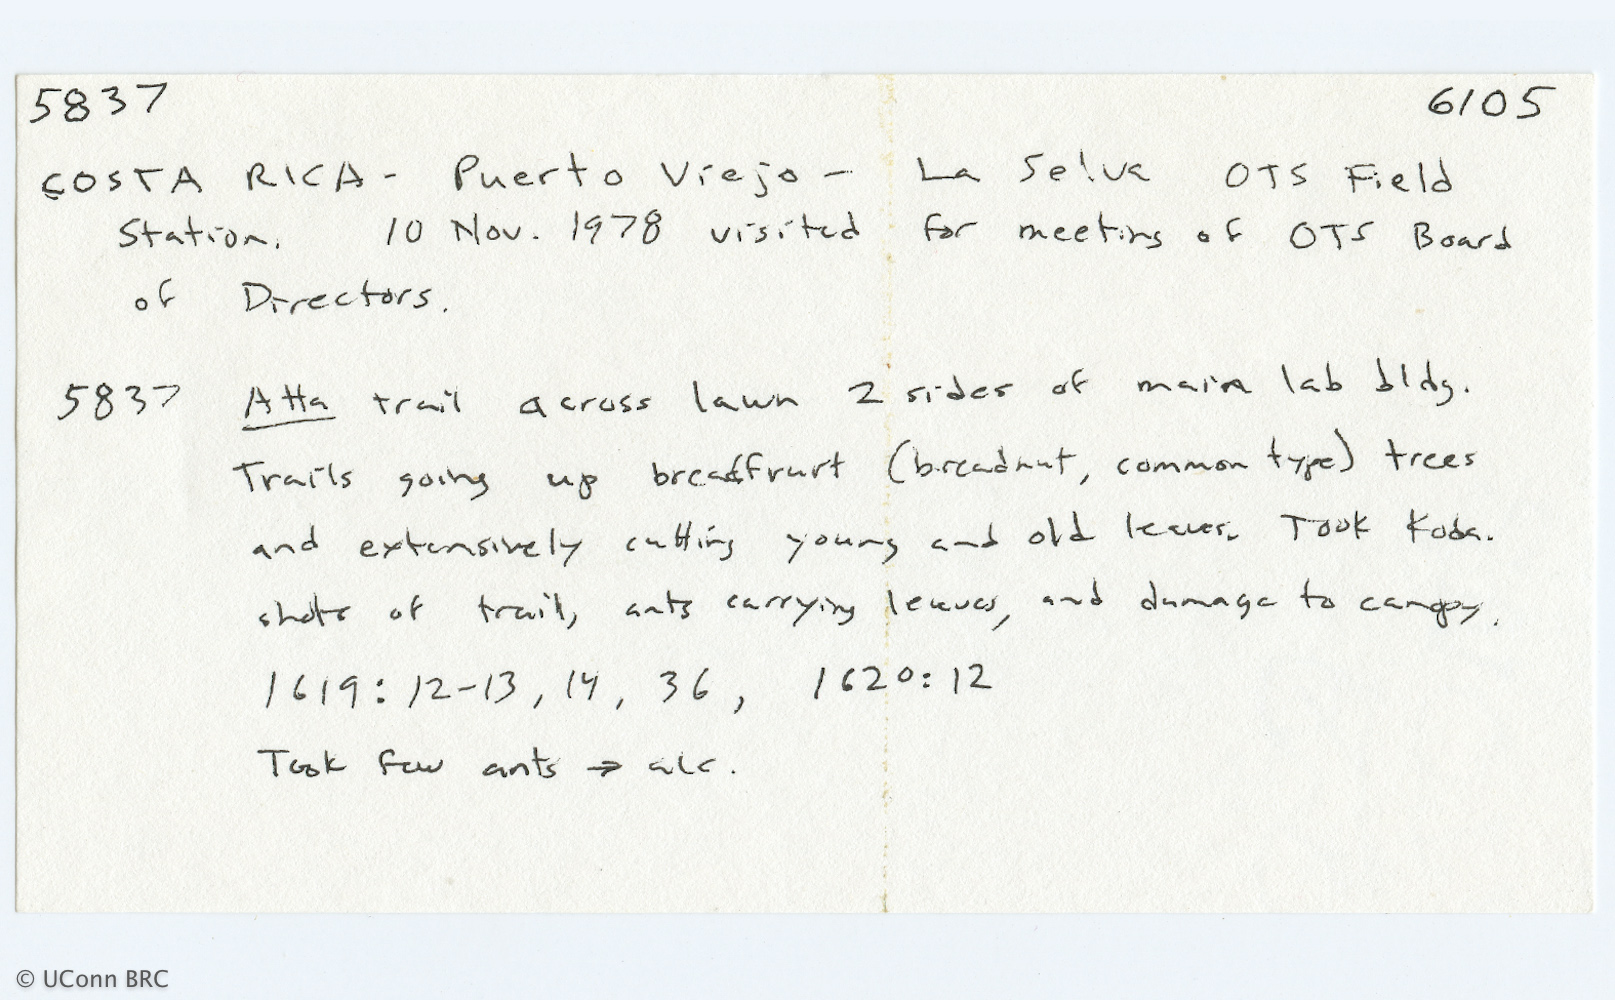 5837 6105
COSTA RICA - Puerto Viejo - La Selva OTS Field
Station. 10 Nov. 1978 visited for meeting of OTS Board
of Directors.
5837 Atta trail across lawn 2 sides of main lab bldg.
Trails going up breadfruit (breadnut, common type) trees
and extensively cutting young and old leaves. Took Koda.
shots of trail, ants carrying leaves, and damage to canopy.
1619: 12-13, 14, 36, 1620: 12
Took few ants → alc.
© UConn BRC